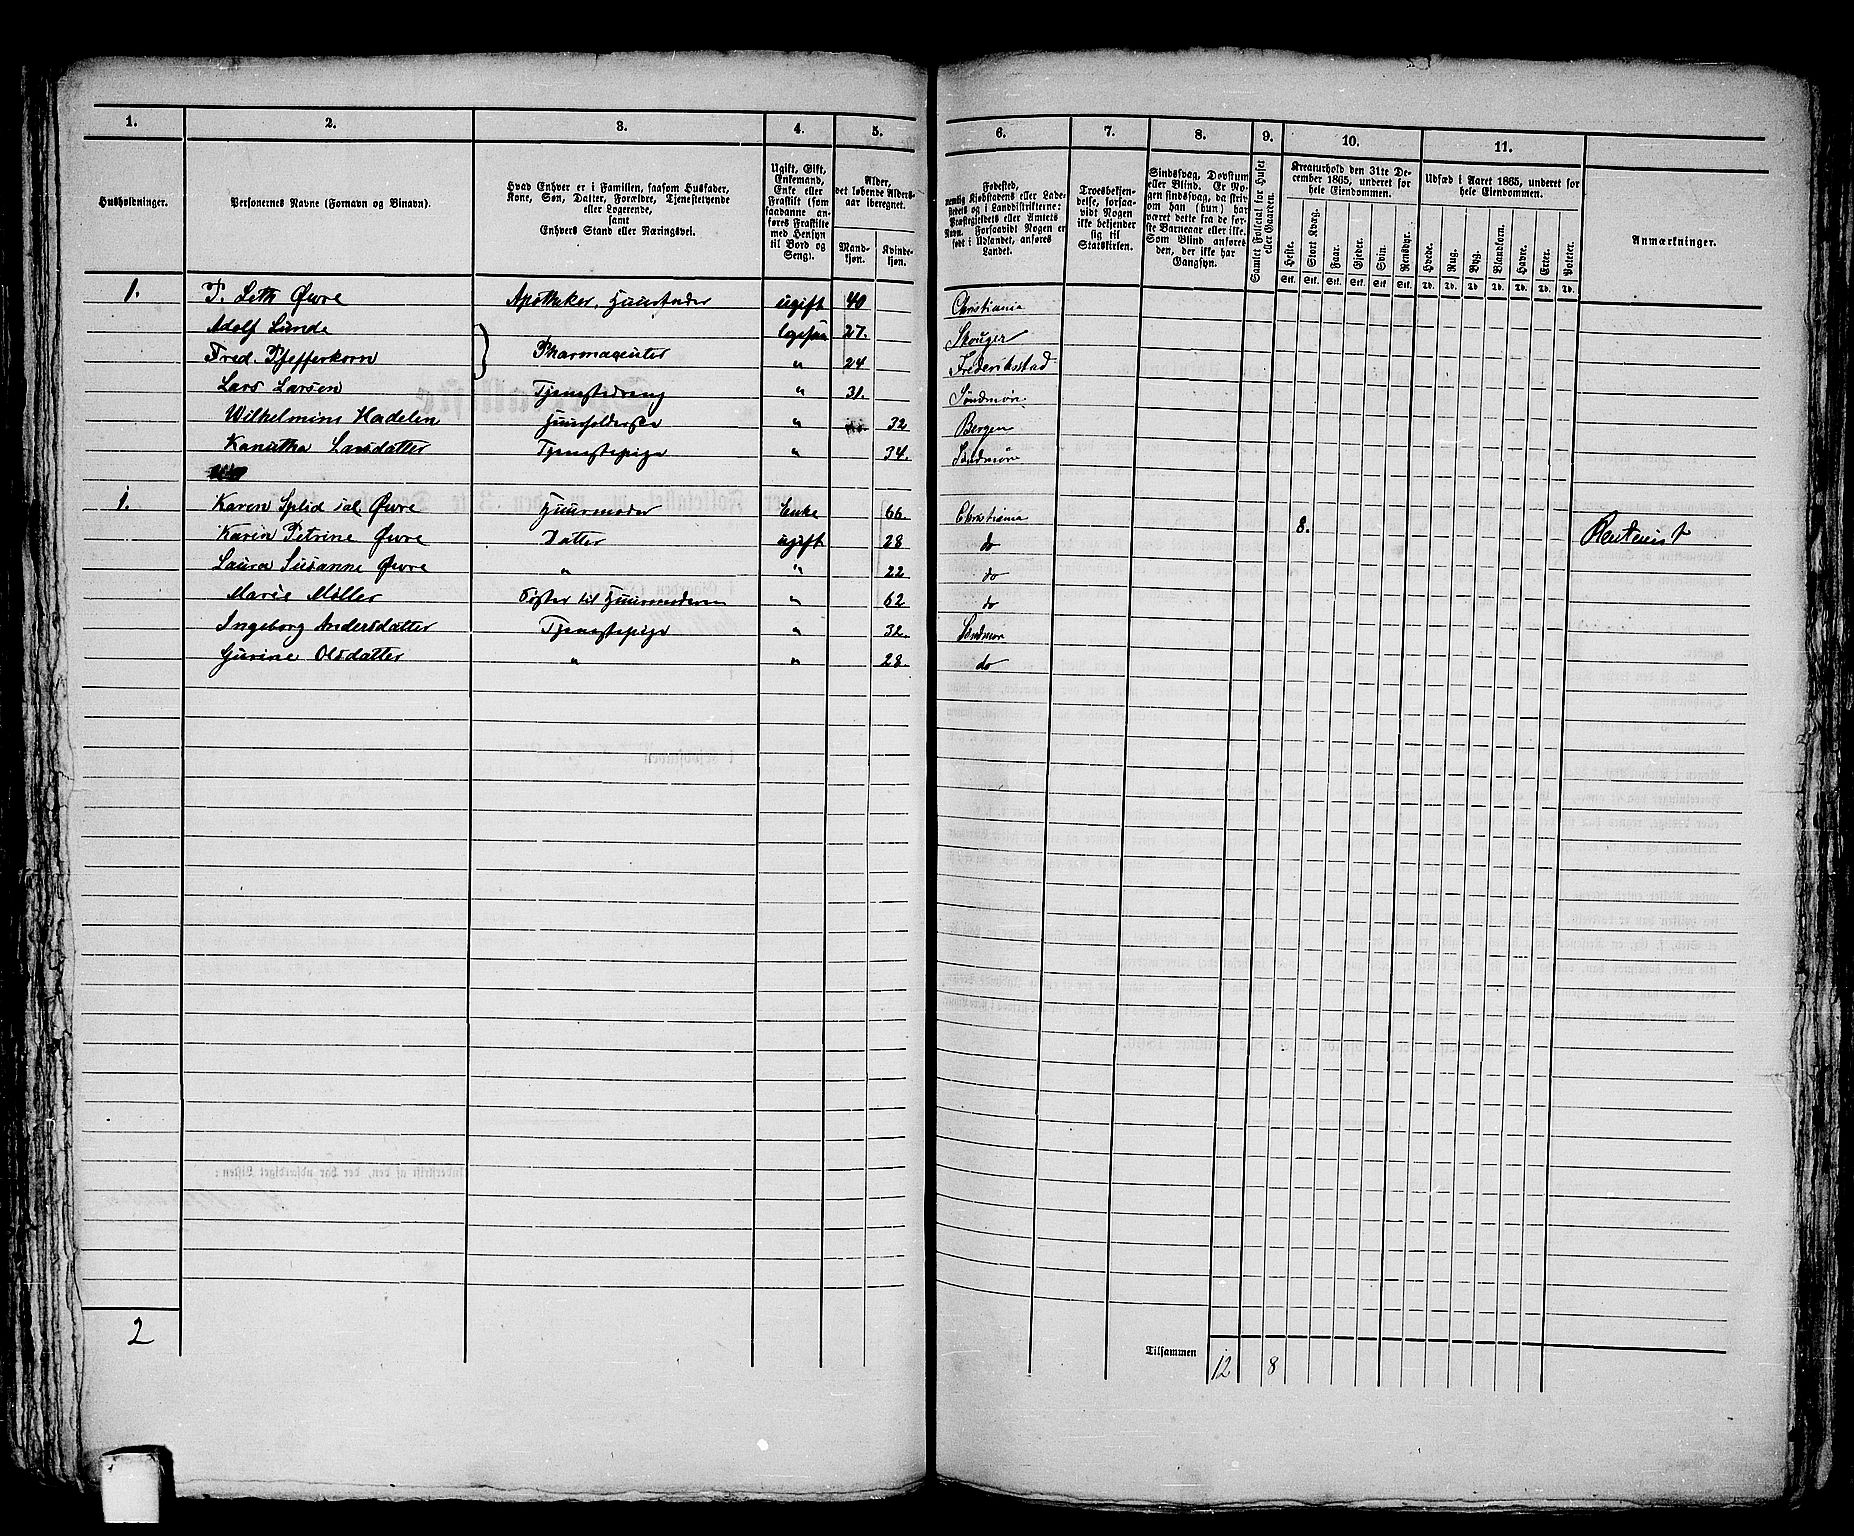 1. 2. 3. 4. 5. 6. 7. 8. 9. 10. 11.
Husholdninger.
Personernes Navne (Fornavn og Binavn).
Hvad Enhver er i Familien, saasom Husfader,
Kone, Søn, Datter, Forældre, Tjenestetyende
eller Logerende,
samt
Enhvers Stand eller Næringsvei.
Ugift, Gift,
Enkemand,
Enke eller
Fraskilt (som
saadanne an-
føres Fraskilte
med Hensyn
til Bord og
Seng).
Alder,
det løbende Alders-
aar iberegnet.
Mand-
kjøn.
Kvinde-
kjøn.
Fødested,
nemlig Kjøbstadens eller Lade-
stedets og i Landdistrikterne:
Præstegjeldets eller Amtets
Navn. Forsaavidt Nogen er
født i Udlandet, anføres
Landet.
Troesbekjen-
delse, forsaa-
vidt Nogen
ikke bekjender
sig til
Statskirken.
Sindssvag, Døvstum
eller Blind. Er No-
gen sindssvag, da skriv
om han (hun) har
været dette fra de for-
ste Barneaar eller ikke.
Som Blind anføres
den, der ikke har
Gangsyn.
Samlet Folketal for Huset
eller Gaarden.
Kreaturhold den 31te De-
cember 1865, underet for
hele Eiendommen.
Heste. Stort Kvæg. Faar. Gjeder. Svin. Rensdyr.
Stk. Stk. Stk. Stk. Stk. Stk.
Udsæd i Aaret 1865, underet for
hele Eiendommen.
Hvede. Rug. Byg. Blandkorn. Havre. Erter. Poteter.
Td. Td. Td. Td. Td. Td. Td.
Anmærkninger.
1. P. Leth Øvre Apotheker, Huusfader ugift 40 Christiania
Adolf Lunde 27. Skouger
Fred. Pfefferkorn Pharmaceuter " 24 Frederiksstad
Lars Larsen Tjenestedreng " 31. Søndmøre
Wilhelmine Hadelen Huusholderske " 32 Bergen
Kanutha Larsdatter Tjenestepige " 34. Søndmøre
1. Karen Splid sal Øvre Huusmoder Enke 66 Christiania 8. Rentenist
Karin Petrine Øvre Datter ugift 28 do
Laura Susanne Øvre " " 22 do
Marie Møller Søster til Huusmoderen " 62 do
Ingeborg Andersdatter Tjenestepige " 32. Søndmør
Gurine Olsdatter " " 28. do
2
Tilsammen 12 8